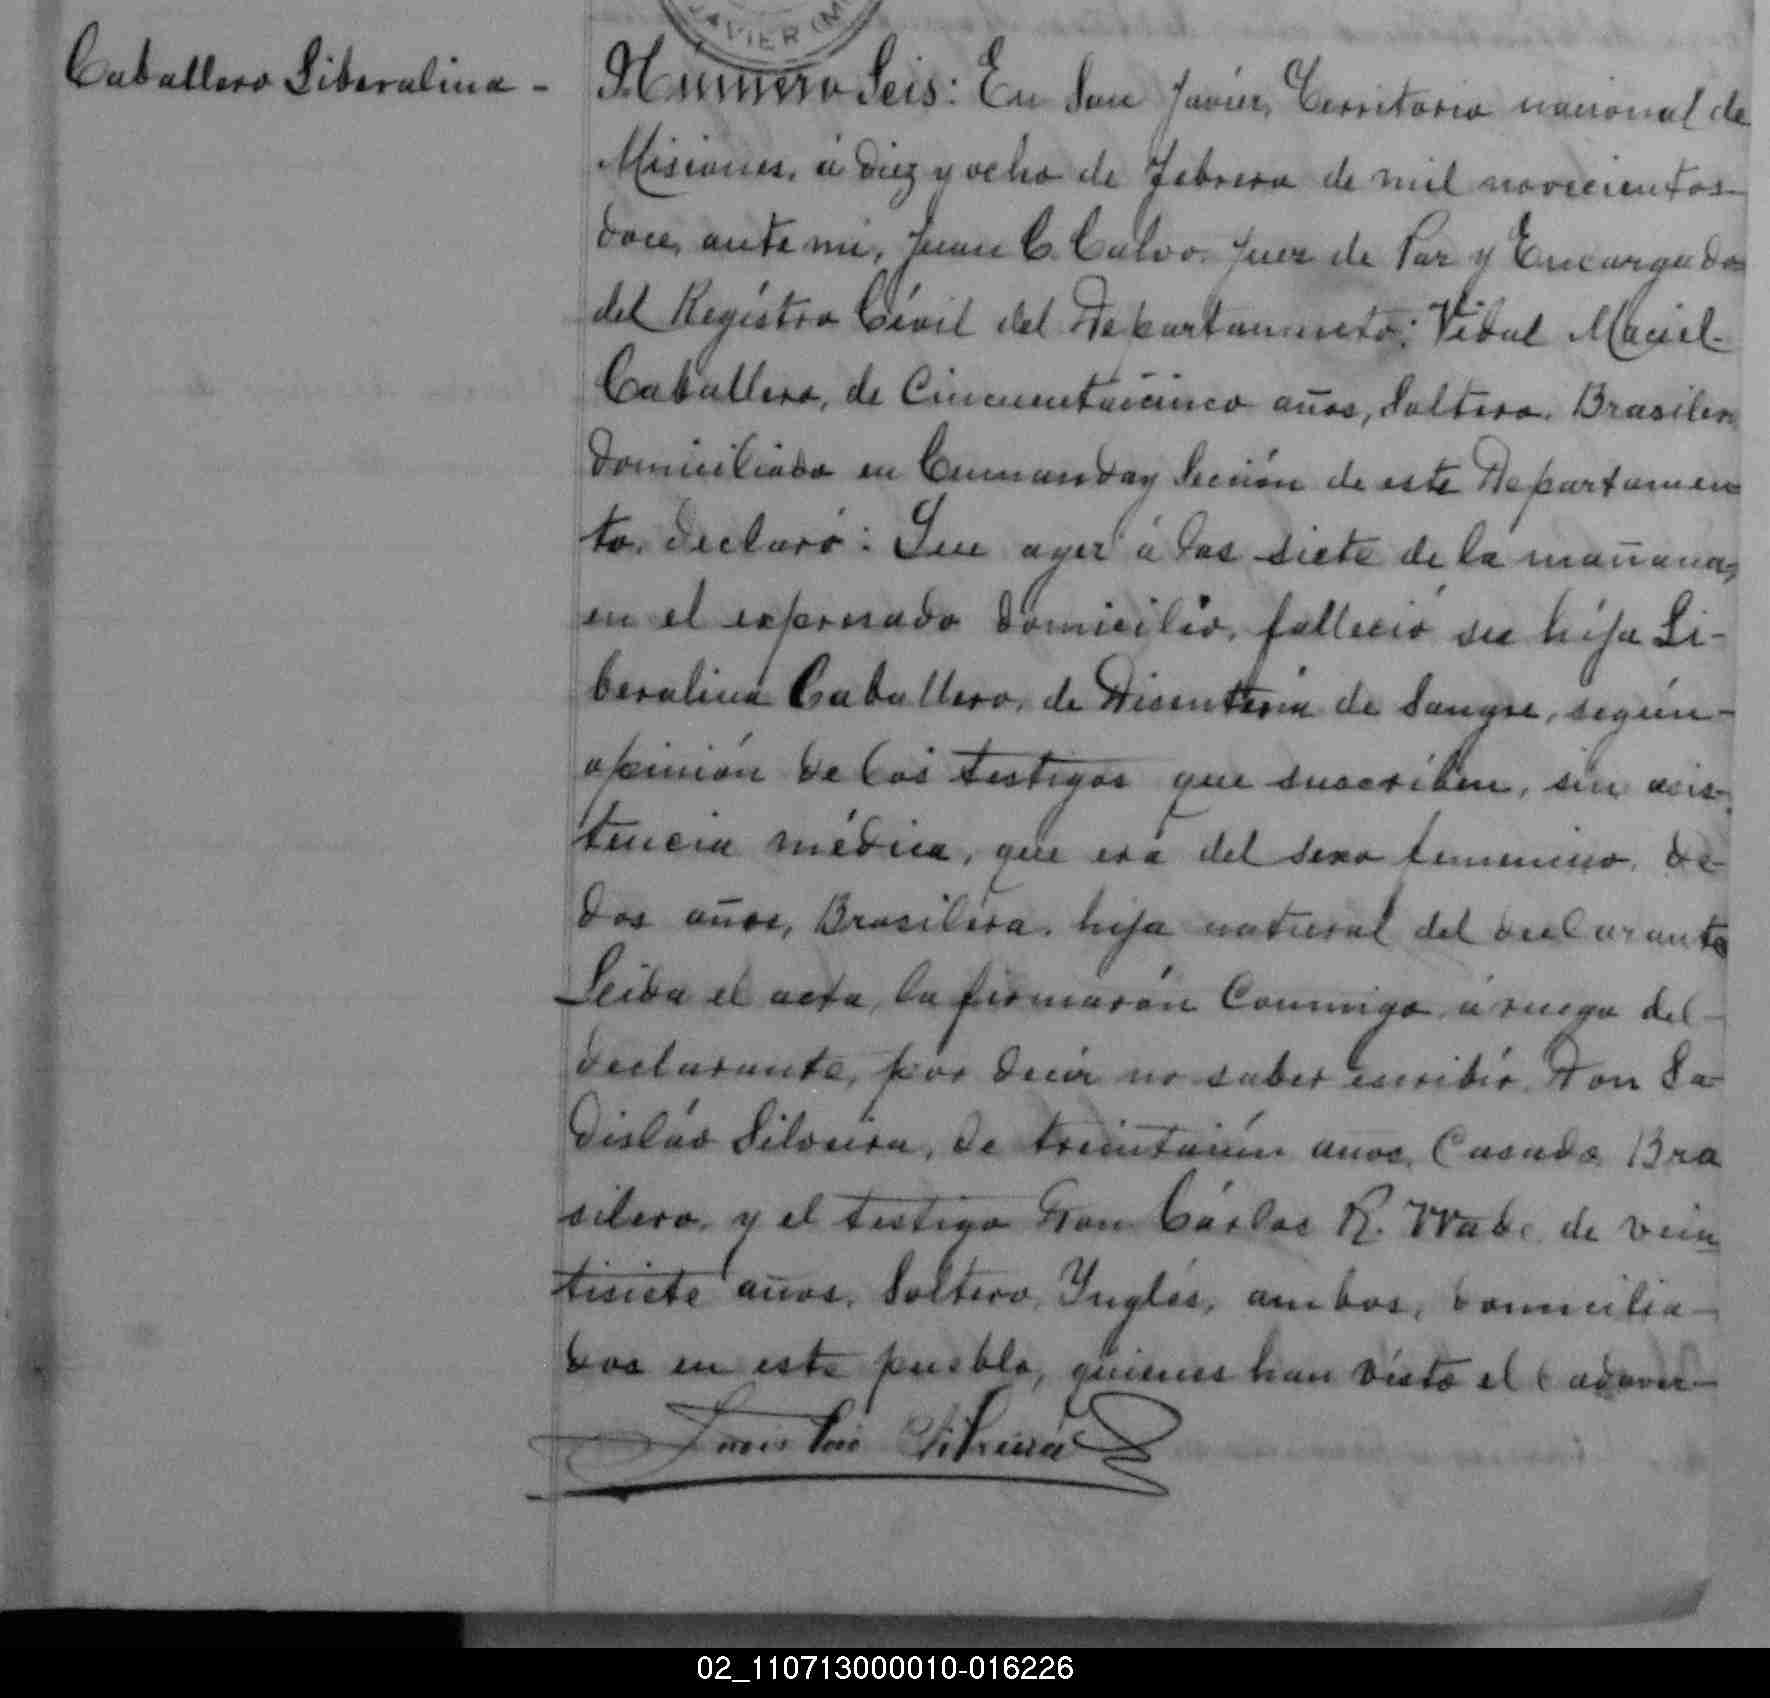 JAVIER (M
Caballero Liberalina -
Número Seis: En San Javier, Territorio nacional de
Misiones, á diez y ocho de Febrero de mil novecientos
doce, ante mi, Juan C. Calvo. Juez de Paz y Encargado
del Registro Cívil del Departamento: Vidal Maciel
Caballero, de Cincuentaicinco años, Soltero. Brasilero
domiciliado en Cumanday Sección de este Departamen
to, declaró: Que ayer á las siete de la mañana,
en el expresado domicilio, falleció su hija Li-
beralina Caballero, de Disentería de Sangre, según
opinión de los testigos que suscriben, sin asis-
tencia médica, que era del sexo femenino, de
dos años, Brasilera. hija natural del declarante
Leida el acta, la firmarón Conmigo á ruego del
declarante, por decir no saber escribir Don La
dislao Silveira, de treintaiún años, Casado, Bra
silero, y el testigo Don Cárlos R. de vein
tisiete años, Soltero, Ynglés, ambos, domicilia-
dos en este pueblo, quienes han visto el cadaver-
Silveira
02_110713000010-016226